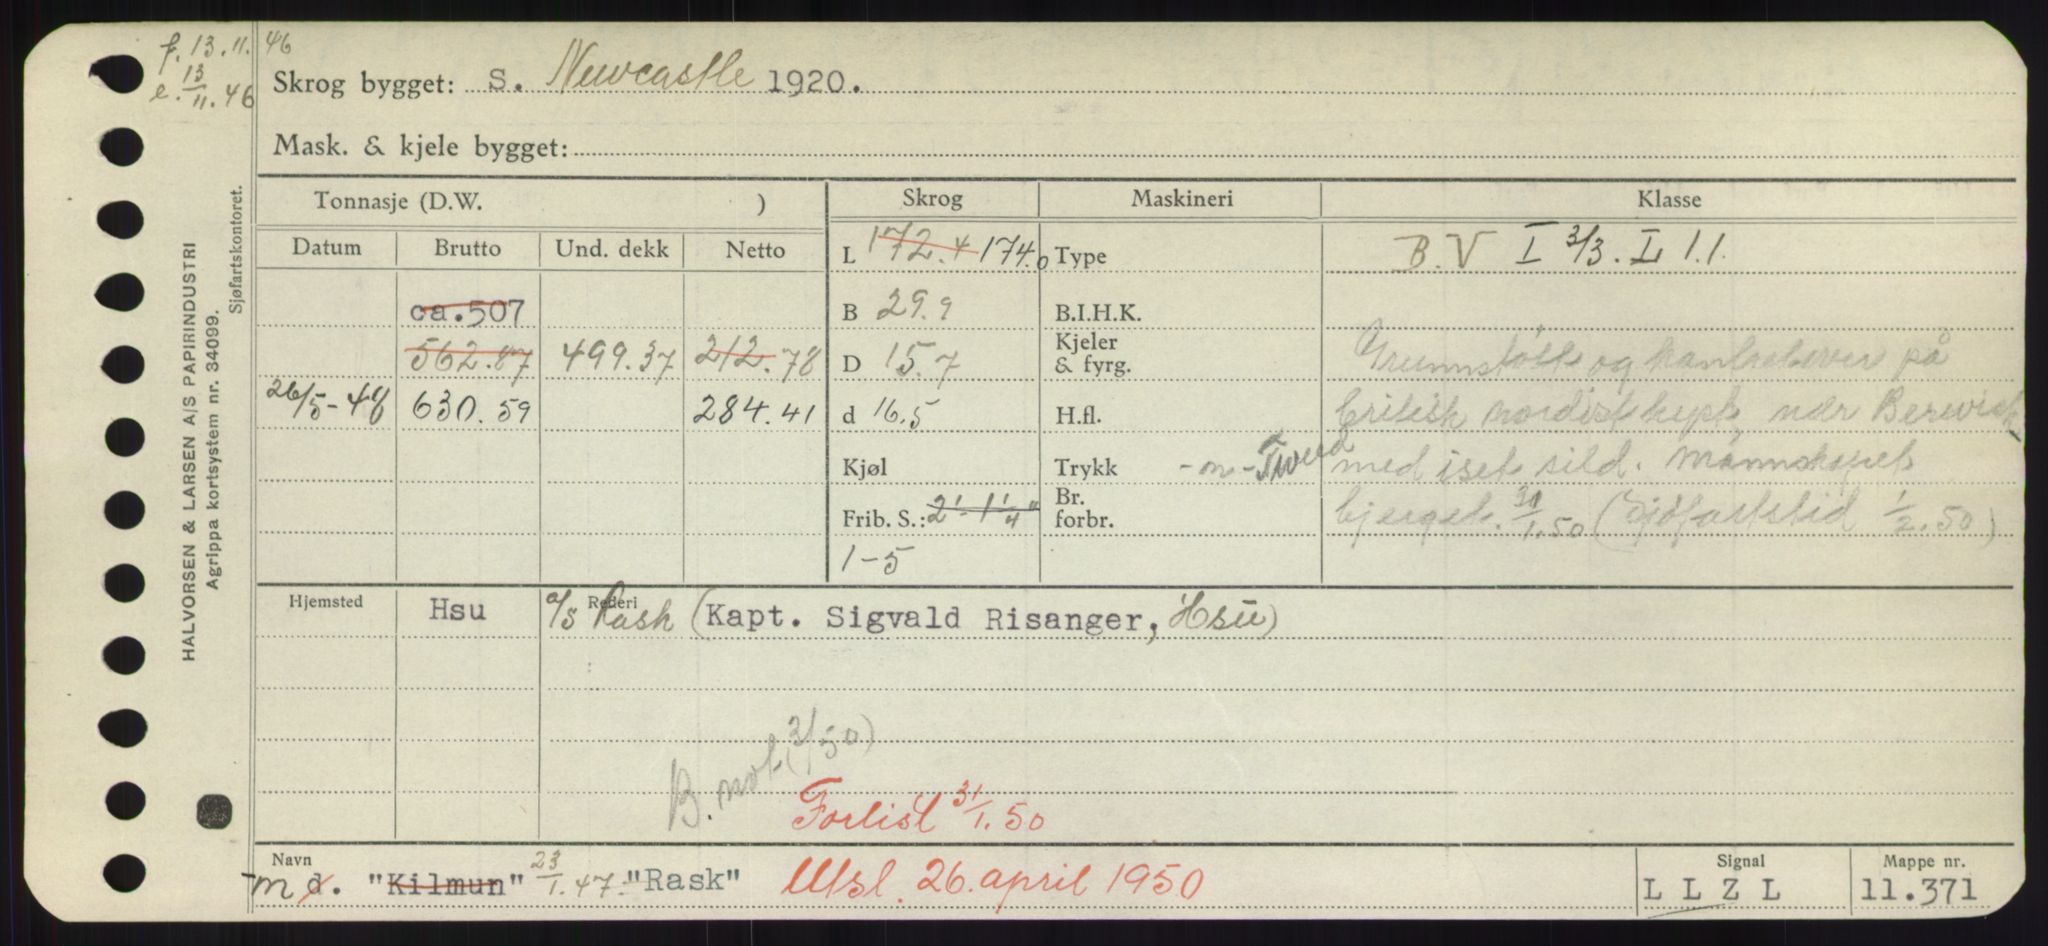 f. 13.11.46
e. 13/11.46
Skrog bygget: S. Newcastle 1920.
Mask. & kjele bygget:
HALVORSEN & LARSEN A/S PAPIRINDUSTRI
Agrippa kortsystem nr. 34099.
Sjøfartskontoret.
Tonnasje (D.W. ) Skrog Maskineri Klasse
Datum Brutto Und. dekk Netto L 172.4 174.0 Type B.V I 3/3. L 1.1.
ca.507 B 29.9 B.I.H.K.
562.87 499.37 212.78 D 15.7 Kjeler & fyrg. Grunnstøtt og kantret over på
26/5-48 630.59 284.41 d 16.5 H.fl. britisk nordøstkyst, nær Berwick
Kjøl Trykk -on-Tweed med iset sild. Mannskapet
Frib. S.: 2'-1 1/4" Br. forbr. bjerget. 31/1.50 (Sjøfartstid 1/2.50)
1-5
Hjemsted Hsu Rederi a/s Rask (Kapt. Sigvald Risanger, Hsu)
B. not. (3/50)
Forlist 31/1.50
Navn Signal Mappe nr.
m d. "Kilmun" 23/1.47. "Rask" Utsl. 26. april 1950 L L Z L 11.371